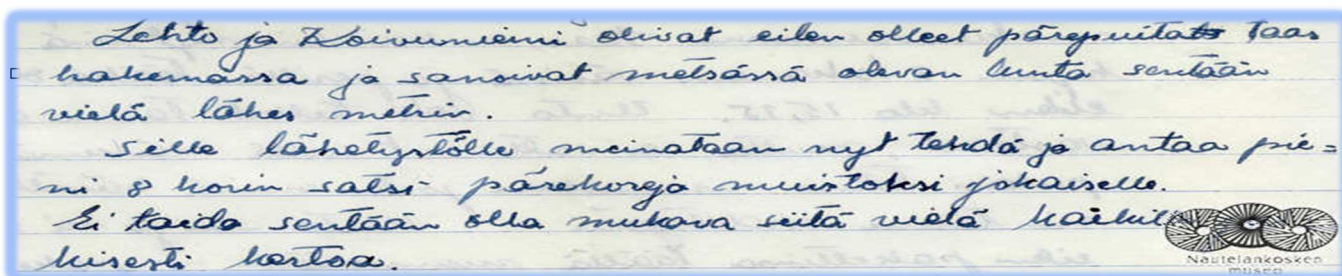 Lehto ja Koivuniemi olivat eilen olleet pärepuita taas
hakemassa ja sanoivat metsässä olevan lunta sentään
vielä lähes metrin.
Sille lähetystölle meinataan nyt tehdä ja antaa pie=
ni 8 korin satsi pärekoreja muistoksi jokaiselle.
Ei taida sentään olla mukava siitä vielä
kisesti kertoa.
Nautelankosken
museo